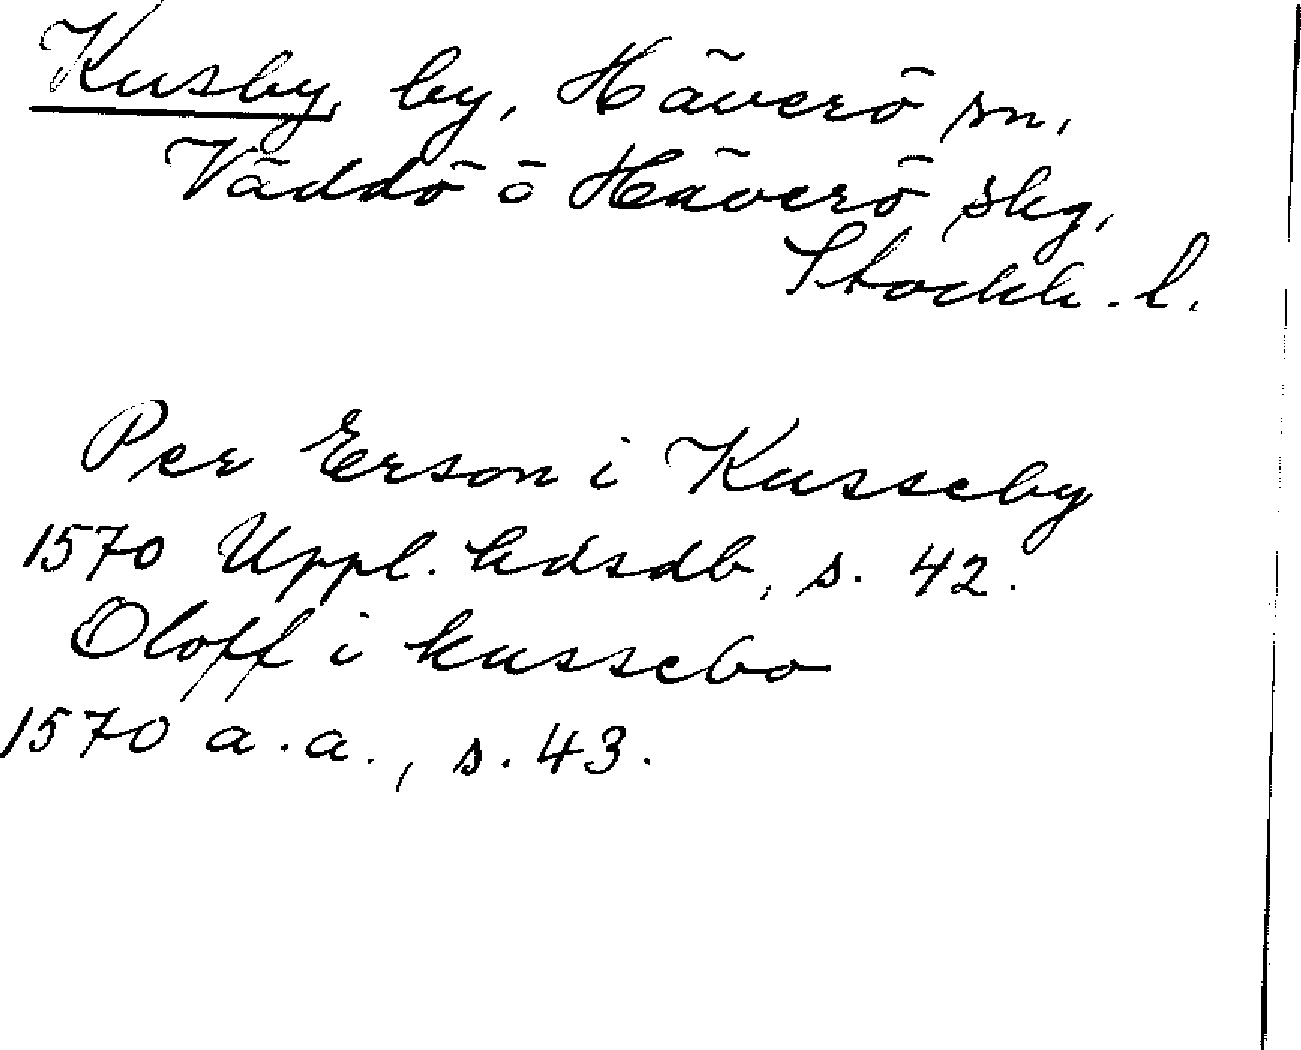 Kusby, by, Häverö sn,
Väddö o Häverö skg,
Stockh. l.
Per Erson i Kusseby
1570 Uppl. hdsdb, s. 42.
Oloff i kussebo
1570 a.a., s. 43.